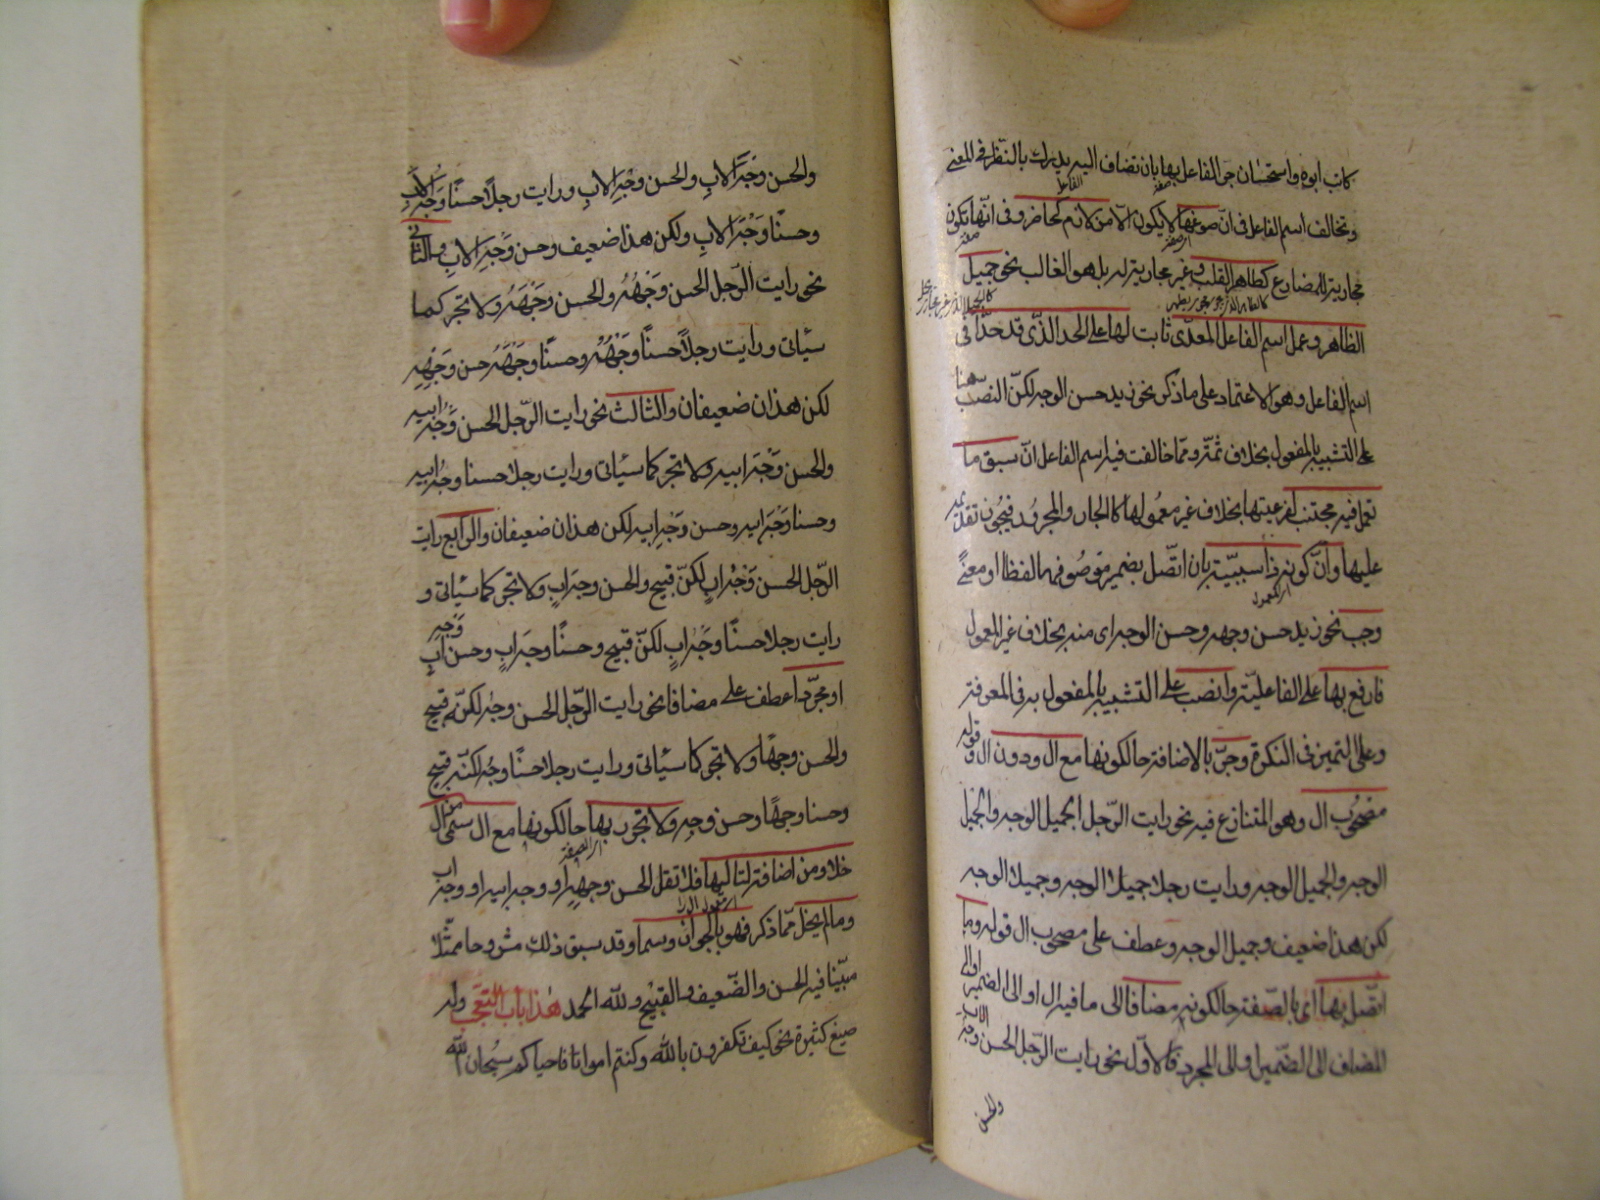 كاتب ابوه واستحسان جر الفاعل بها بان تضاف اليه يدرك بالنظر فى المعنى
وتخالف اسم الفاعل فى ان صوغها لا يكون الا من لازم كحاضر وفى انها تكون
مجارية للمضارع كطاهر القلب وغير مجارية له بل هو الغالب نحو جميل
الظاهر وعمل اسم الفاعل المعدّى ثابت لها على الحد الذى قد حُدّا فى
اسم الفاعل وهو الاعتماد على ما ذكر نحو زيد حسن الوجه لكنّ النصب هنا
على التشبيه بالمفعول بخلاف ثمّة ومما خالفت فيه اسم الفاعل انّ سبق ما
تعمل فيه مجتنب لفرعيتها بخلاف غير معمولها كالجار والمجرور فيجوز تقديمه
عليها وانّ كونه ذا سببيّة بان اتّصل بضمير موصوفها لفظا او معنىً
وجب نحو زيد حسن وجهه وحسن الوجه اى منه بخلاف غير المعمول
فارفع بها على الفاعليّة وانصب على التشبيه بالمفعول به فى المعرفة
وعلى التميز فى النكرة وجرّ بالاضافة حالكونها مع ال ودون ال وقوله
مصحوب ال وهو المتنازع فيه نحو رايت الرّجل الجميل الوجه والجميل
الوجه والجميل الوجه ورايت رجلا جميلا الوجه وجميلا الوجه
لكن هذا ضعيف وجميل الوجه وعطف على مصحوب ال قوله وما
اتّصل بها اى بالصّفة حالكونه مضافا الى ما فيه ال او الى الضمير او الى
المضاف الى الضّمير او الى المجرد فالاوّل نحو رايت الرّجل الحسن وجهُ الاب
والحسن
والحسن وجهَ الابِ والحسن وجهِ الابِ ورايت رجلاً حسنًا وجهُ الابِ
وحسنًا وجهَ الابِ ولكن هذا ضعيف وحسن وجهِ الابِ والثانى
نحو رايت الرّجل الحسن وجههُ والحسن وجههُ ولا تجر كما
سيأتى ورايت رجلاً حسنًا وجههُ وحسنًا وجههُ حسن وجههِ
لكن هذان ضعيفان والثالث نحو رايت الرّجل الحسن وجهُ ابيه
والحسن وجهَ ابيه ولا تجر كما سيأتى ورايت رجلا حسنا وجهُ ابيه
وحسنا وجهَ ابيه وحسن وجهِ ابيه لكن هذان ضعيفان والرابع رايت
الرّجل الحسن وجهُ ابٍ لكنّه قبيح والحسن وجهَ ابٍ ولا تجر كما سيأتى و
رايت رجلا حسنًا وجهُ ابٍ لكنّه قبيح وحسنًا وجهَ ابٍ وحسن وجهِ ابٍ
او مجرّد اعطف على مضافا نحو رايت الرّجل الحسن وجهُ لكنّه قبيح
والحسن وجهًا ولا تجر كما سيأتى ورايت رجلا حسنًا وجهُ لكنّه قبيح
وحسنا وجهًا وحسن وجهِ ولا تجرر بها حالكونها مع ال سمًى من ال
خلا ومن اضافة لتاليها فلا تقل الحسن وجههِ او وجه ابيه او وجه اب
وما لم يخل مما ذكر فهو بالجواز وسما وقد سبق ذلك مشروحا ممثلا
مبيّنا فيه الحسن والضّعيف والقبيح ولله الحمد هذا باب التعجّب وله
صيغ كثيرة نحو كيف تكفرون بالله وكنتم امواتا فاحياكم سبحان الله